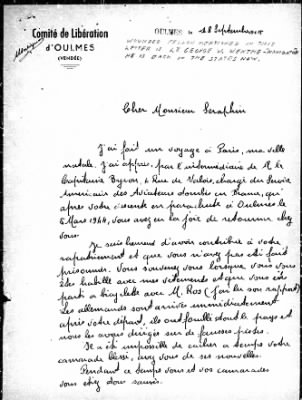 Comité de Libération
d'OULMES
(VENDÉE)
OULMES le 18 Septembre
WOUNDED FELLOW MENTIONED IN THIS
LETTER IS LT GEORGE V.
HE IS BACK IN THE STATES NOW.
Cher Monsieur Seraphin
J'ai fait un voyage à Paris, ma ville
natale. J'ai appris, par l'intermédiaire de M. le
Capitaine Byron, 4 Rue de Valois, chargé du Service
Américain des Aviateurs tombés en France, qu'
après votre descente en parachute à Oulmes le
5 Mars 1944, vous avez eu la joie de retourner chez
vous.
Je suis heureux d'avoir contribué à votre
rapatriement et que vous n'ayez pas été fait
prisonnier. Vous souvenez vous lorsque vous vous
êtes habillé avec mes vêtements et que vous êtes
parti à bicyclette avec M. Ros (j'ai lu son rapport)
Les allemands sont arrivés immédiatement
après votre départ, ils ont fouillé dans le pays et
nous les avons dirigés sur de fausses pistes.
Il a été impossible de cacher à temps votre
camarade blessé, avez vous de ses nouvelles.
Pendant ce temps vous et vos camarades
vous étiez donc sauvés.